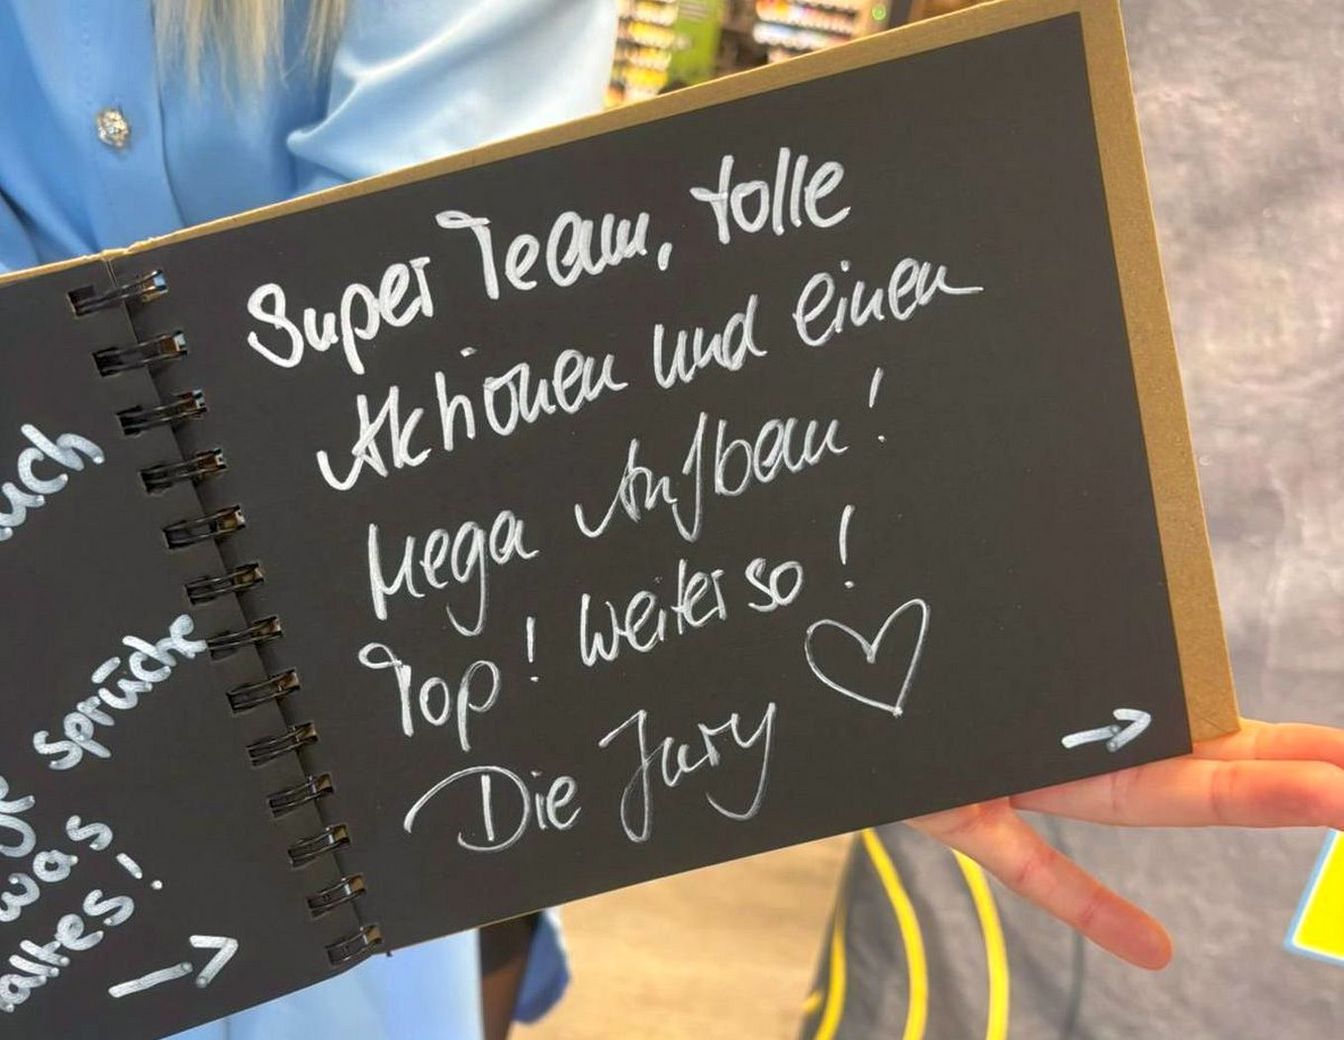 uch
Sprüche
was
altes!
Super Team, tolle
Aktionen und einen
Mega Aufbau!
Top! Weiter so!
Die Jury